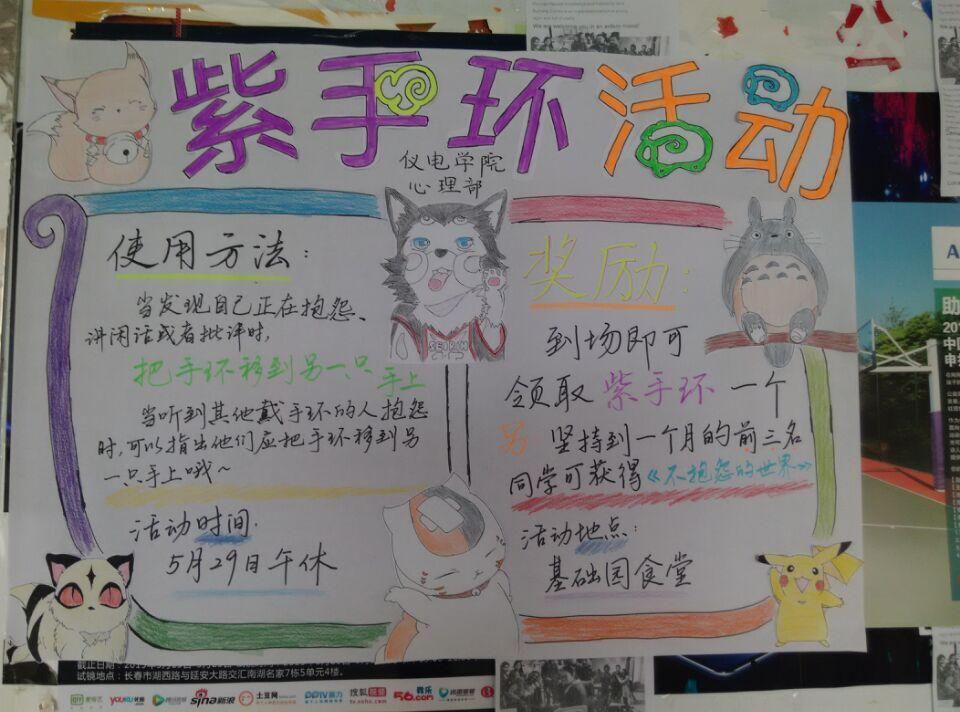 紫手环活动
仪电学院
心理部
使用方法：
当发现自己正在抱怨、
讲闲话或者批评时，
把手环移到另一只手上
当听到其他戴手环的人抱怨
时，可以指出他们应把手环移到另
一只手上哦~
活动时间：
5月29日午休
SEIRIN
奖励：
到场即可
领取紫手环一个
另 坚持到一个月的前三名
同学可获得《不抱怨的世界》
活动地点：
基础园食堂
公
试镜地点：长春市湖西路与延安大路交汇南湖名家7栋5单元4楼。
sina新浪
土豆网
PPTV聚力
搜狐视频
tv.sohu.com
56.com